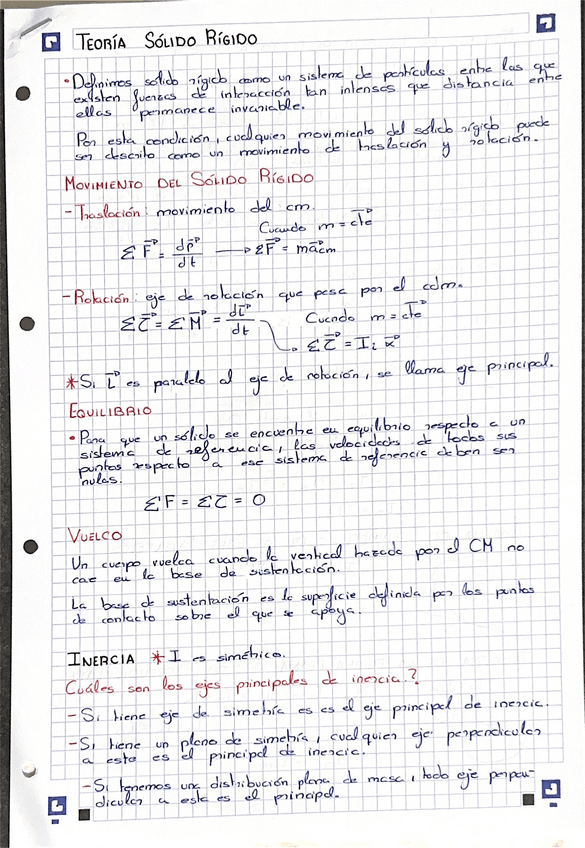 TEORÍA SÓLIDO RÍGIDO
• Definimos sólido rígido como un sistema de partículas, entre las que
existen fuerzas de interacción tan intensas que distancia entre
ellas permanece invariable.
Por esta condición, cualquier movimiento del sólido rígido puede
ser descrito como un movimiento de traslación y rotación.
MOVIMIENTO DEL SÓLIDO RÍGIDO
- Traslación: movimiento del cm.
Cuando m = cte
Σ F⃗ = dp⃗/dt → ΣF⃗ = ma⃗cm
- Rotación: eje de rotación que pasa por el cdm.
Σ τ⃗ = Σ M⃗ = dL⃗/dt Cuando m = cte
Σ τ⃗ = I_i α⃗
* Si L⃗ es paralelo al eje de rotación, se llama eje principal.
EQUILIBRIO
• Para que un sólido se encuentre en equilibrio respecto a un
sistema de referencia, las velocidades de todos sus
puntos respecto a ese sistema de referencia deben ser
nulas.
ΣF = Στ = 0
VUELCO
Un cuerpo vuelca cuando la vertical trazada por el CM no
cae en la base de sustentación.
La base de sustentación es la superficie definida por los puntos
de contacto sobre el que se apoya.
INERCIA * I es simétrico.
Cuáles son los ejes principales de inercia.?
- Si tiene eje de simetría es es el eje principal de inercia.
- Si tiene un plano de simetría, cualquier eje perpendicular
a este es el principal de inercia.
- Si tenemos una distribución plana de masa, todo eje perpen-
dicular a esta es el principal.